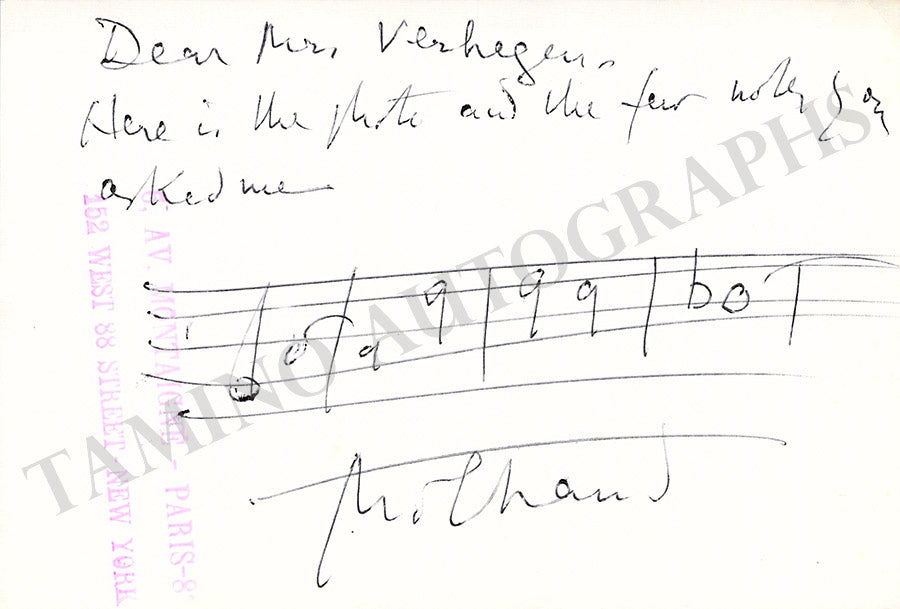 Dear Mrs. Verhegen.
Here is the photo and the few notes you
asked me
5, AV. MONTAIGNE - PARIS-8
152 WEST 88 STREET-NEW YORK
TAMINO AUTOGRAPHS